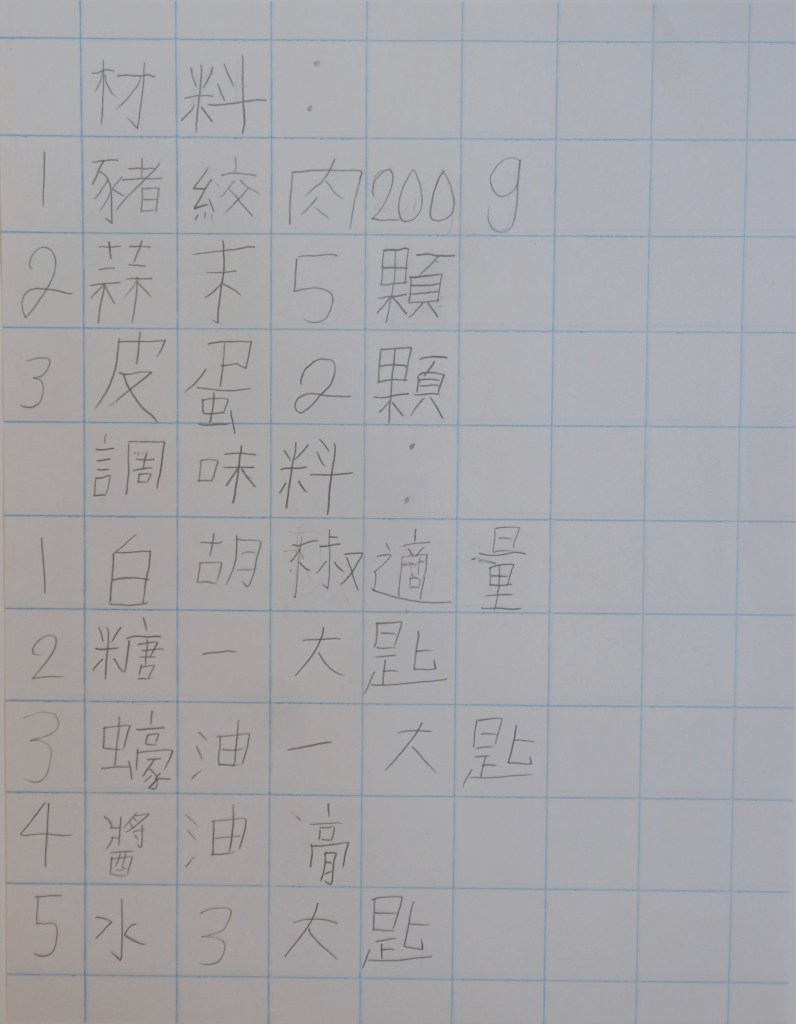 材料：
1豬絞肉200g
2蒜末5顆
3皮蛋2顆
調味料：
1白胡椒適量
2糖一大匙
3蠔油一大匙
4醬油膏
5水3大匙